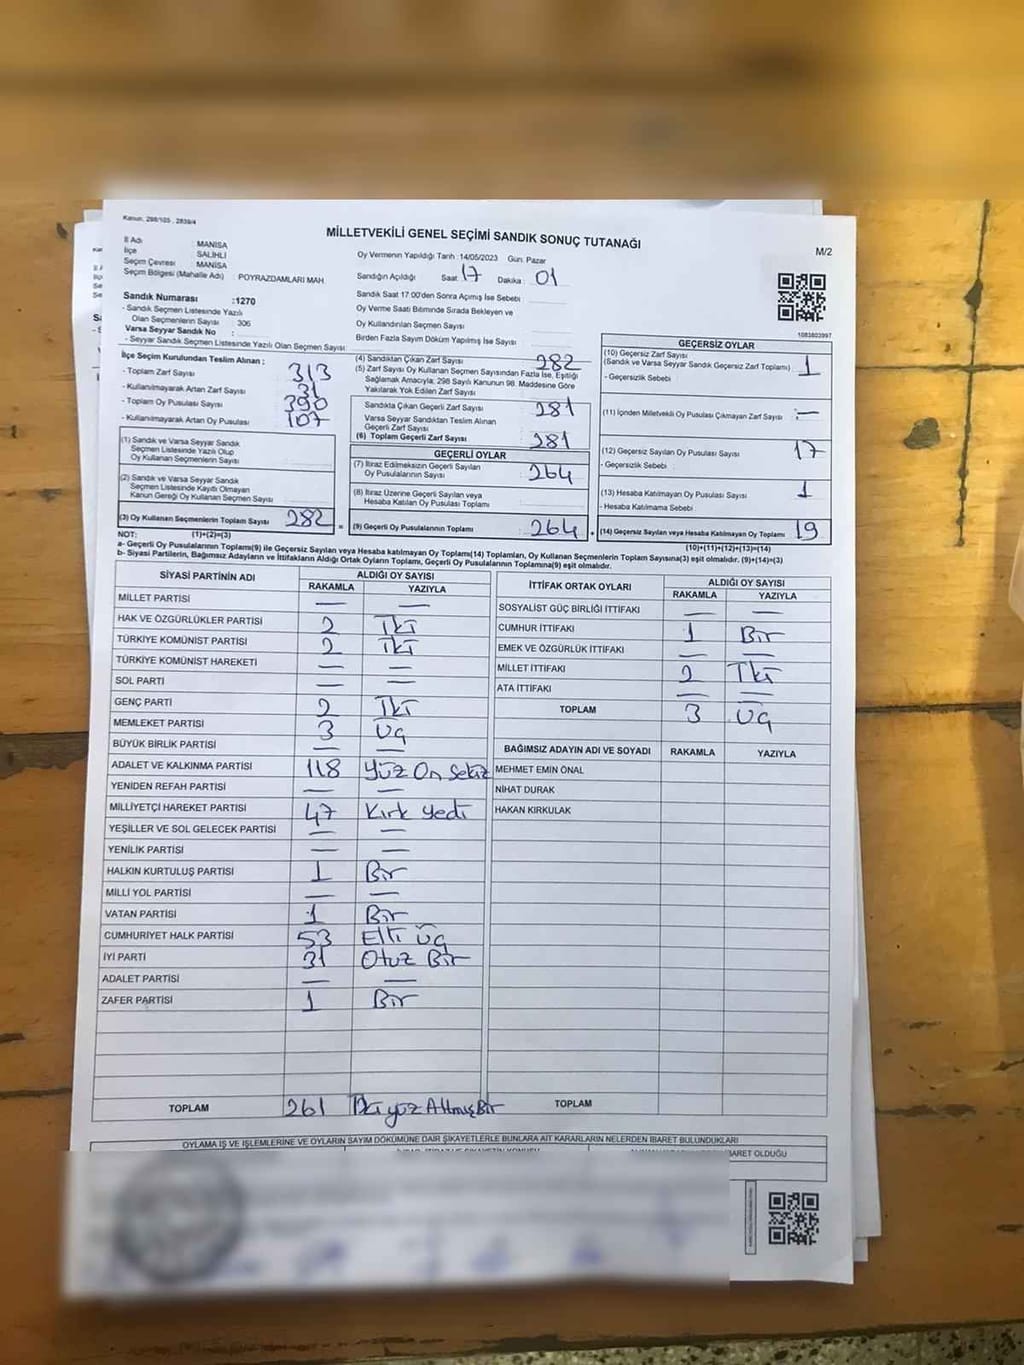 Kanun, 298/105 , 2839/4
MİLLETVEKİLİ GENEL SEÇİMİ SANDIK SONUÇ TUTANAĞI
M/2
İl Adı : MANİSA
İlçe : SALİHLİ
Seçim Çevresi : MANİSA
Seçim Bölgesi (Mahalle Adı) : POYRAZDAMLARI MAH.
Oy Vermenin Yapıldığı Tarih :14/05/2023 Gün: Pazar
Sandığın Açıldığı Saat: 17 Dakika : 01
Sandık Saat 17.00'den Sonra Açılmış İse Sebebi :
Oy Verme Saati Bitiminde Sırada Bekleyen ve
Oy Kullandırılan Seçmen Sayısı
Birden Fazla Sayım Döküm Yapılmış İse Sayısı :
Sandık Numarası :1270
- Sandık Seçmen Listesinde Yazılı
Olan Seçmenlerin Sayısı : 306
Varsa Seyyar Sandık No :
- Seyyar Sandık Seçmen Listesinde Yazılı Olan Seçmen Sayısı
1083803997
İlçe Seçim Kurulundan Teslim Alınan :
- Toplam Zarf Sayısı 313
- Kullanılmayarak Artan Zarf Sayısı 31
- Toplam Oy Pusulası Sayısı 390
- Kullanılmayarak Artan Oy Pusulası 107
(1) Sandık ve Varsa Seyyar Sandık
Seçmen Listesinde Yazılı Olup
Oy Kullanan Seçmenlerin Sayısı
(2) Sandık ve Varsa Seyyar Sandık
Seçmen Listesinde Kayıtlı Olmayan
Kanun Gereği Oy Kullanan Seçmen Sayısı
(3) Oy Kullanan Seçmenlerin Toplam Sayısı 282 =
(1)+(2)=(3)
(4) Sandıktan Çıkan Zarf Sayısı 282
(5) Zarf Sayısı Oy Kullanan Seçmen Sayısından Fazla İse, Eşitliği
Sağlamak Amacıyla; 298 Sayılı Kanunun 98. Maddesine Göre
Yakılarak Yok Edilen Zarf Sayısı
Sandıkta Çıkan Geçerli Zarf Sayısı 281
Varsa Seyyar Sandıktan Teslim Alınan
Geçerli Zarf Sayısı
(6) Toplam Geçerli Zarf Sayısı 281
GEÇERLİ OYLAR
(7) İtiraz Edilmeksizin Geçerli Sayılan
Oy Pusulalarının Sayısı : 264
(8) İtiraz Üzerine Geçerli Sayılan veya
Hesaba Katılan Oy Pusulası Toplamı :
(9) Geçerli Oy Pusulalarının Toplamı 264 +
GEÇERSİZ OYLAR
(10) Geçersiz Zarf Sayısı
(Sandık ve Varsa Seyyar Sandık Geçersiz Zarf Toplamı) : 1
- Geçersizlik Sebebi :
(11) İçinden Milletvekili Oy Pusulası Çıkmayan Zarf Sayısı : —
(12) Geçersiz Sayılan Oy Pusulası Sayısı : 17
- Geçersizlik Sebebi :
(13) Hesaba Katılmayan Oy Pusulası Sayısı : 1
- Hesaba Katılmama Sebebi :
(14) Geçersiz Sayılan veya Hesaba Katılmayan Oy Pusulası Toplamı 19
(10)+(11)+(12)+(13)=(14)
NOT:
a- Geçerli Oy Pusulalarının Toplamı(9) ile Geçersiz Sayılan veya Hesaba katılmayan Oy Toplamı(14) Toplamları, Oy Kullanan Seçmenlerin Toplam Sayısına(3) eşit olmalıdır. (9)+(14)=(3)
b- Siyasi Partilerin, Bağımsız Adayların ve İttifakların Aldığı Ortak Oyların Toplamı, Geçerli Oy Pusulalarının Toplamına(9) eşit olmalıdır.
SİYASİ PARTİNİN ADI ALDIĞI OY SAYISI
RAKAMLA YAZIYLA
MİLLET PARTİSİ — —
HAK VE ÖZGÜRLÜKLER PARTİSİ 2 İki
TÜRKİYE KOMÜNİST PARTİSİ 2 İki
TÜRKİYE KOMÜNİST HAREKETİ — —
SOL PARTİ — —
GENÇ PARTİ 2 İki
MEMLEKET PARTİSİ 3 Üç
BÜYÜK BİRLİK PARTİSİ — —
ADALET VE KALKINMA PARTİSİ 118 Yüz On Sekiz
YENİDEN REFAH PARTİSİ — —
MİLLİYETÇİ HAREKET PARTİSİ 47 Kırk yedi
YEŞİLLER VE SOL GELECEK PARTİSİ — —
YENİLİK PARTİSİ — —
HALKIN KURTULUŞ PARTİSİ 1 Bir
MİLLİ YOL PARTİSİ — —
VATAN PARTİSİ 1 Bir
CUMHURİYET HALK PARTİSİ 53 Elli üç
İYİ PARTİ 31 Otuz Bir
ADALET PARTİSİ — —
ZAFER PARTİSİ 1 Bir
TOPLAM 261 İki yüz Altmış Bir
İTTİFAK ORTAK OYLARI ALDIĞI OY SAYISI
RAKAMLA YAZIYLA
SOSYALİST GÜÇ BİRLİĞİ İTTİFAKI — —
CUMHUR İTTİFAKI 1 Bir
EMEK VE ÖZGÜRLÜK İTTİFAKI — —
MİLLET İTTİFAKI 2 İki
ATA İTTİFAKI — —
TOPLAM 3 Üç
BAĞIMSIZ ADAYIN ADI VE SOYADI RAKAMLA YAZIYLA
MEHMET EMİN ÖNAL
NİHAT DURAK
HAKAN KIRKULAK
TOPLAM
OYLAMA İŞ VE İŞLEMLERİNE VE OYLARIN SAYIM DÖKÜMÜNE DAİR ŞİKAYETLERLE BUNLARA AİT KARARLARIN NELERDEN İBARET BULUNDUKLARI
İBARET OLDUĞU